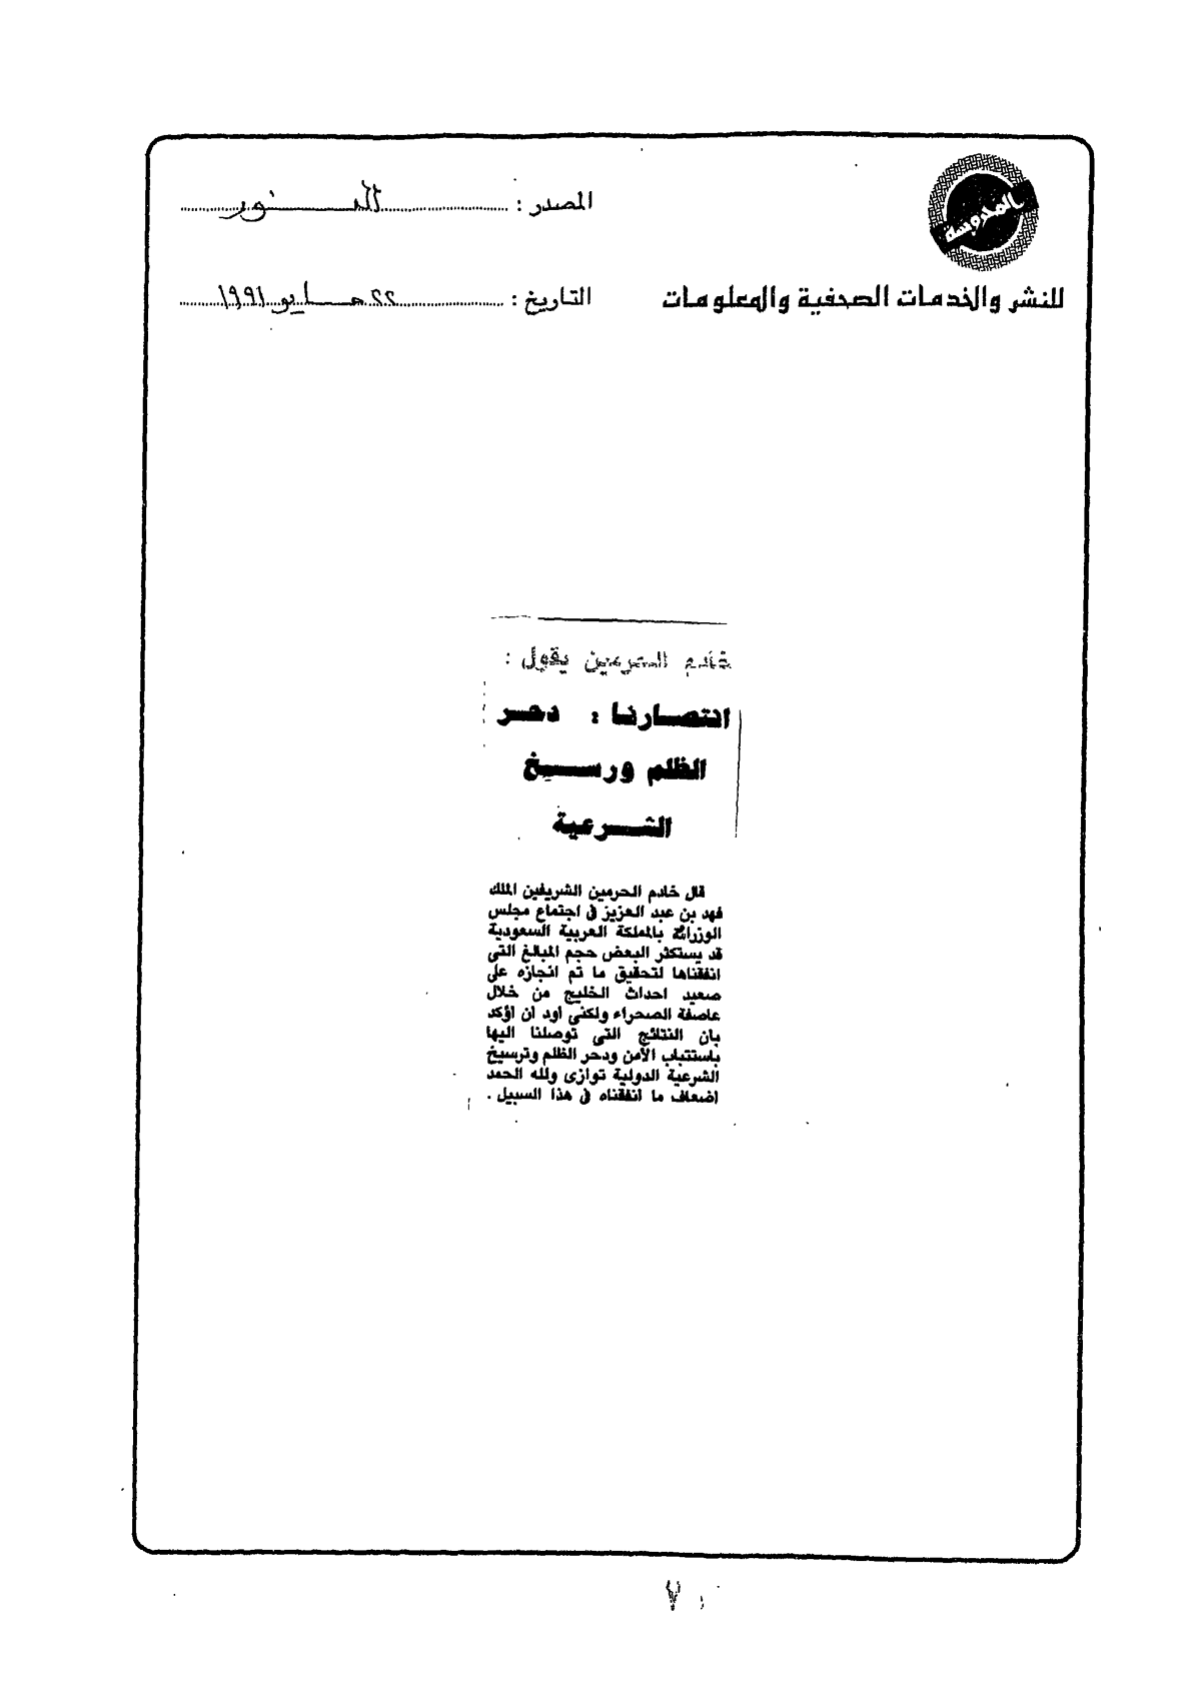 المحروسة
للنشر والخدمات الصحفية والمعلومات
المصدر : النور
التاريخ : ٢٢ مايو ١٩٩١
خادم الحرمين يقول :
انتصارنا : دحر
الظلم ورسيخ
الشرعية
قال خادم الحرمين الشريفين الملك
فهد بن عبد العزيز فى اجتماع مجلس
الوزراء بالمملكة العربية السعودية
قد يستكثر البعض حجم المبالغ التى
انفقناها لتحقيق ما تم انجازه على
صعيد احداث الخليج من خلال
عاصفة الصحراء ولكنى اود ان اؤكد
بان النتائج التى توصلنا اليها
باستتباب الأمن ودحر الظلم وترسيخ
الشرعية الدولية توازى ولله الحمد
اضعاف ما انفقناه فى هذا السبيل .